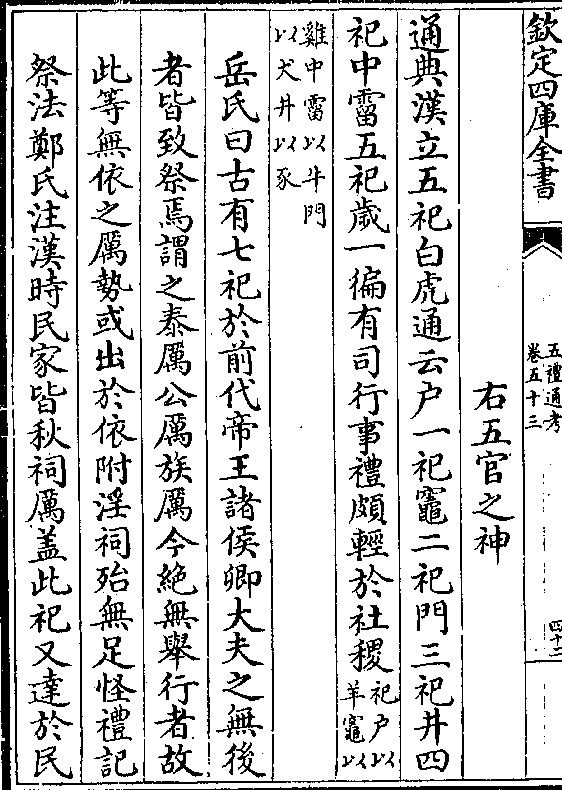 欽定四庫全書
五禮通考
卷五十三
四十二
右五官之神
通典漢立五祀白虎通云户一祀竈二祀門三祀井四
祀中霤五祀歲一徧有司行事禮頗輕於社稷
祀户以
羊竈以
雞中霤以牛門
以犬井以豕
岳氏曰古有七祀於前代帝王諸侯卿大夫之無後
者皆致祭焉謂之泰厲公厲族厲今絶無舉行者故
此等無依之厲勢或出於依附淫祠殆無足怪禮記
祭法鄭氏注漢時民家皆秋祠厲蓋此祀又達於民